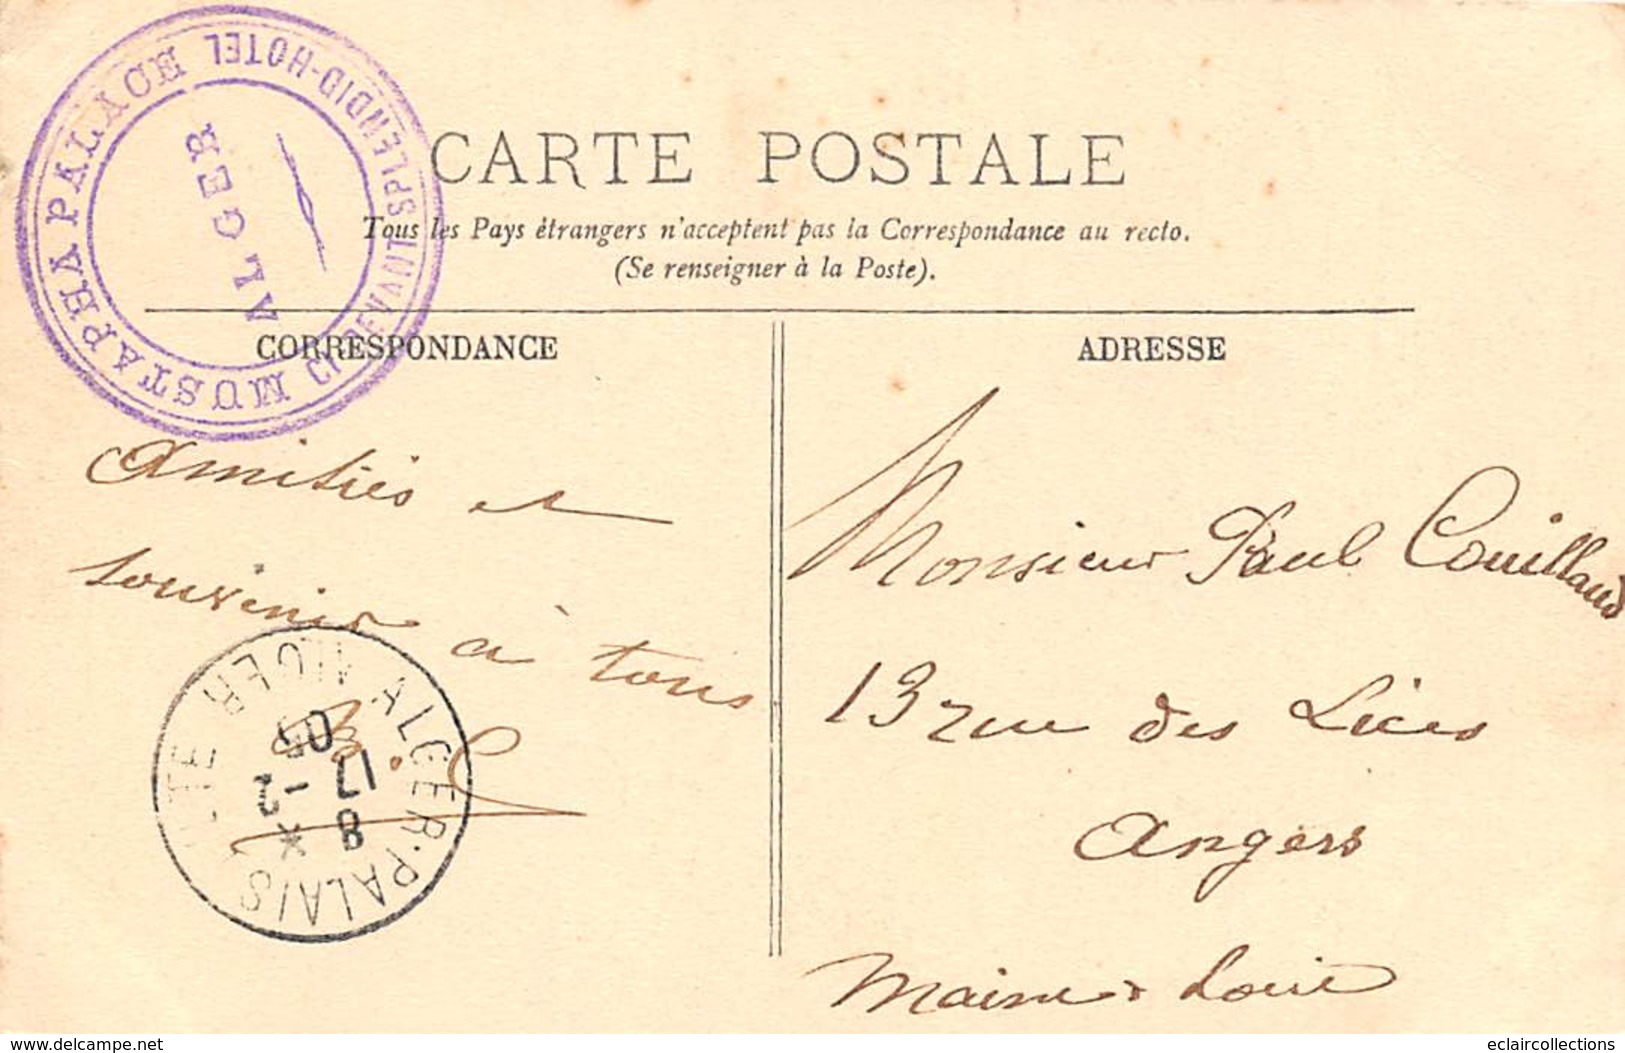 MUSTAPHA PALACE
CI-DEVANT SPLENDID-HOTEL
ALGER
CARTE POSTALE
Tous les Pays étrangers n'acceptent pas la Correspondance au recto.
(Se renseigner à la Poste).
CORRESPONDANCE
Amitiés et
souvenir à tous
ALGER-PALAIS
ALGER
8
17
-2
05
ADRESSE
Monsieur Paul Couillaud
13 rue des Lices
Angers
Maine & Loire
www.delcampe.net
eclaircollections